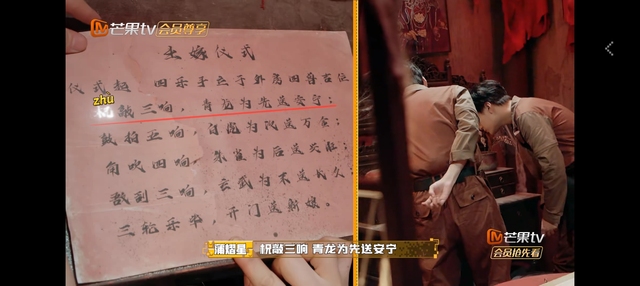 芒果tv 会员尊享
出嫁仪式
仪式起 四乐手立于外围四音
zhù
柷敲三响，青龙为先送安宁；
鼓拍五响，白虎为次送万
角吹四响，朱雀为后送
三响，玄武为
三轮乐平，开门送新娘。
蒲熠星 柷敲三响 青龙为先送安宁
芒果tv
会员抢先看